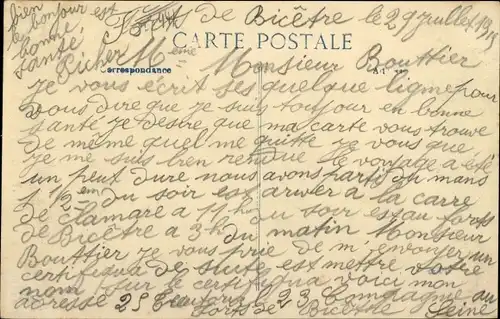 bien le bonjour est
bonne
santé
Forts de Bicêtre le 29 juillet 1915
CARTE POSTALE
Richer Mème Monsieur Bouttier
Correspondance
je vous écrit ses quelque ligne pour
vous dire que je suis toujour en bonne
santé je desire que ma carte vous trouve
de meme quel me quitte je vous que
je me suis bien rendue le voyage a été
un peut dure nous avons parti du mans
1 1/2 em du soir est arwer a la carre
de clamare a 11 h du soir est au forts
de Bicêtre a 3 h du matin Monsieur
Bouttier je vous prie de m'envoyer un
certifiqua de suite est mettre votre
nom sur le certifiqua voici mon
adresse 25 Territorial 23 Compagnie au
forts de Bicêthe Seine